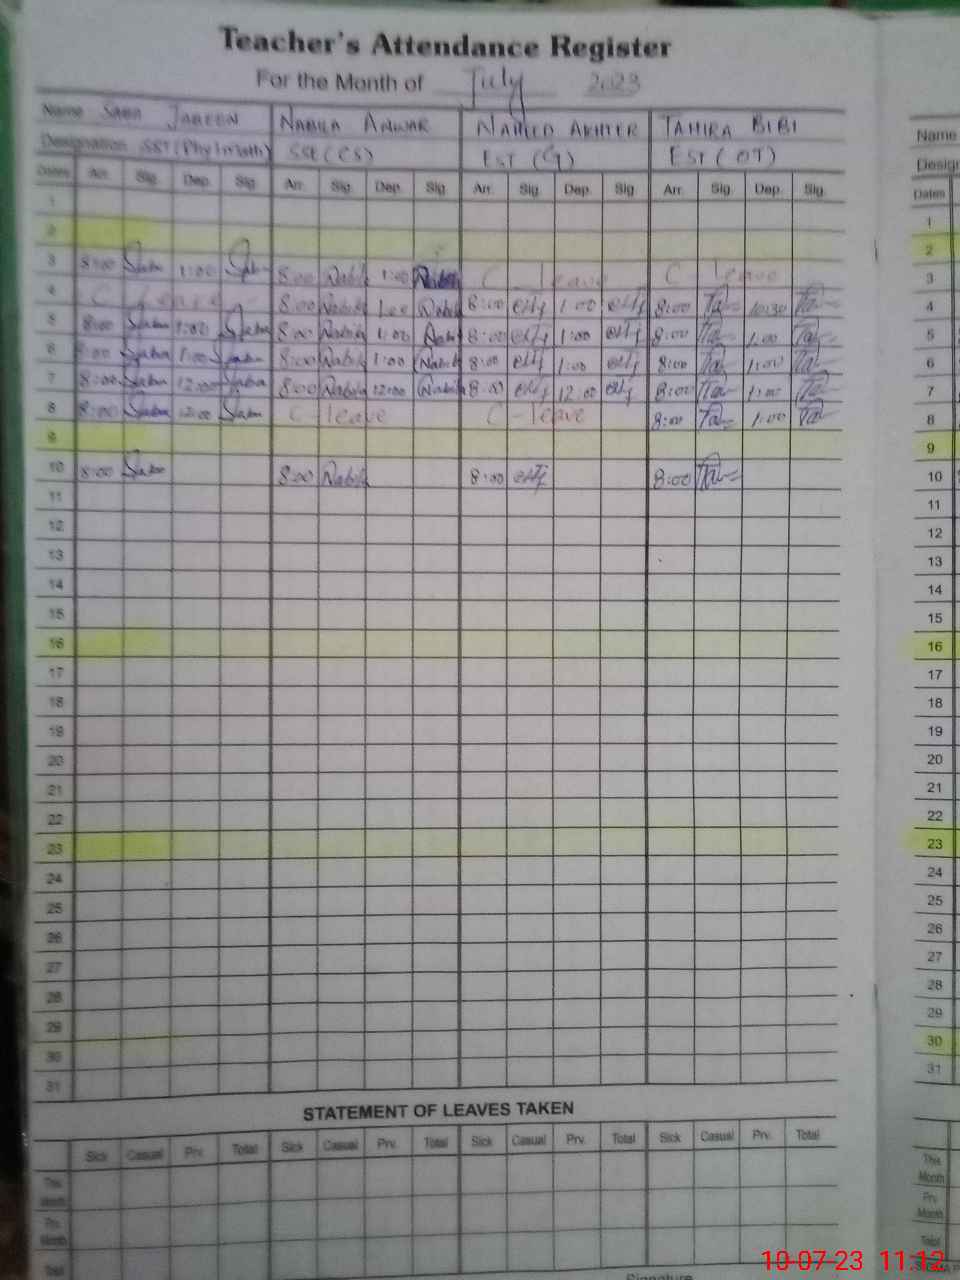 Teacher's Attendance Register
For the Month of July 2023
Name Saba JABEEN NABILA ANWAR NAHEED AKHTER TAHIRA BIBI Name
Designation SST (Phy/math) SSE (CS) EST (CT) EST (OT) Desig
Dates Arr. Sig. Dep. Sig. Arr. Sig. Dep. Sig. Arr. Sig. Dep. Sig Arr. Sig. Dep. Sig. Dates
1 1
2 2
3 8:00 Saba 1:00 Saba 8:00 Nabila 1:00 Nabila C - leave C - leave 3
4 C - leave 8:00 Nabila 1:00 Nabila 8:00 1:00 8:00 10:30 4
5 8:00 Saba 1:00 Saba 8:00 Nabila 1:00 Nabila 8:00 1:00 8:00 1:00 5
6 8:00 Saba 1:00 Saba 8:00 Nabila 1:00 Nabila 8:00 1:00 8:00 1:00 6
7 8:00 Saba 12:00 Saba 8:00 Nabila 12:00 Nabila 8:00 12:00 8:00 7
8 8:00 Saba 12:00 Saba C - leave C - leave 8:00 1:00 8
9 9
10 8:00 Saba 8:00 Nabila 8:00 8:00 10
11 11
12 12
13 13
14 14
15 15
16 16
17 17
18 18
19 19
20 20
21 21
22 22
23 23
24 24
25 25
26 26
27 27
28 28
29 29
30 30
31 31
STATEMENT OF LEAVES TAKEN
Sick Casual Prv. Total Sick Casual Prv. Total Sick Casual Prv. Total Sick Casual Prv. Total
This Month This Month
Prv. Month Prv. Month
Total Total
Signature
10-07-23 11:12